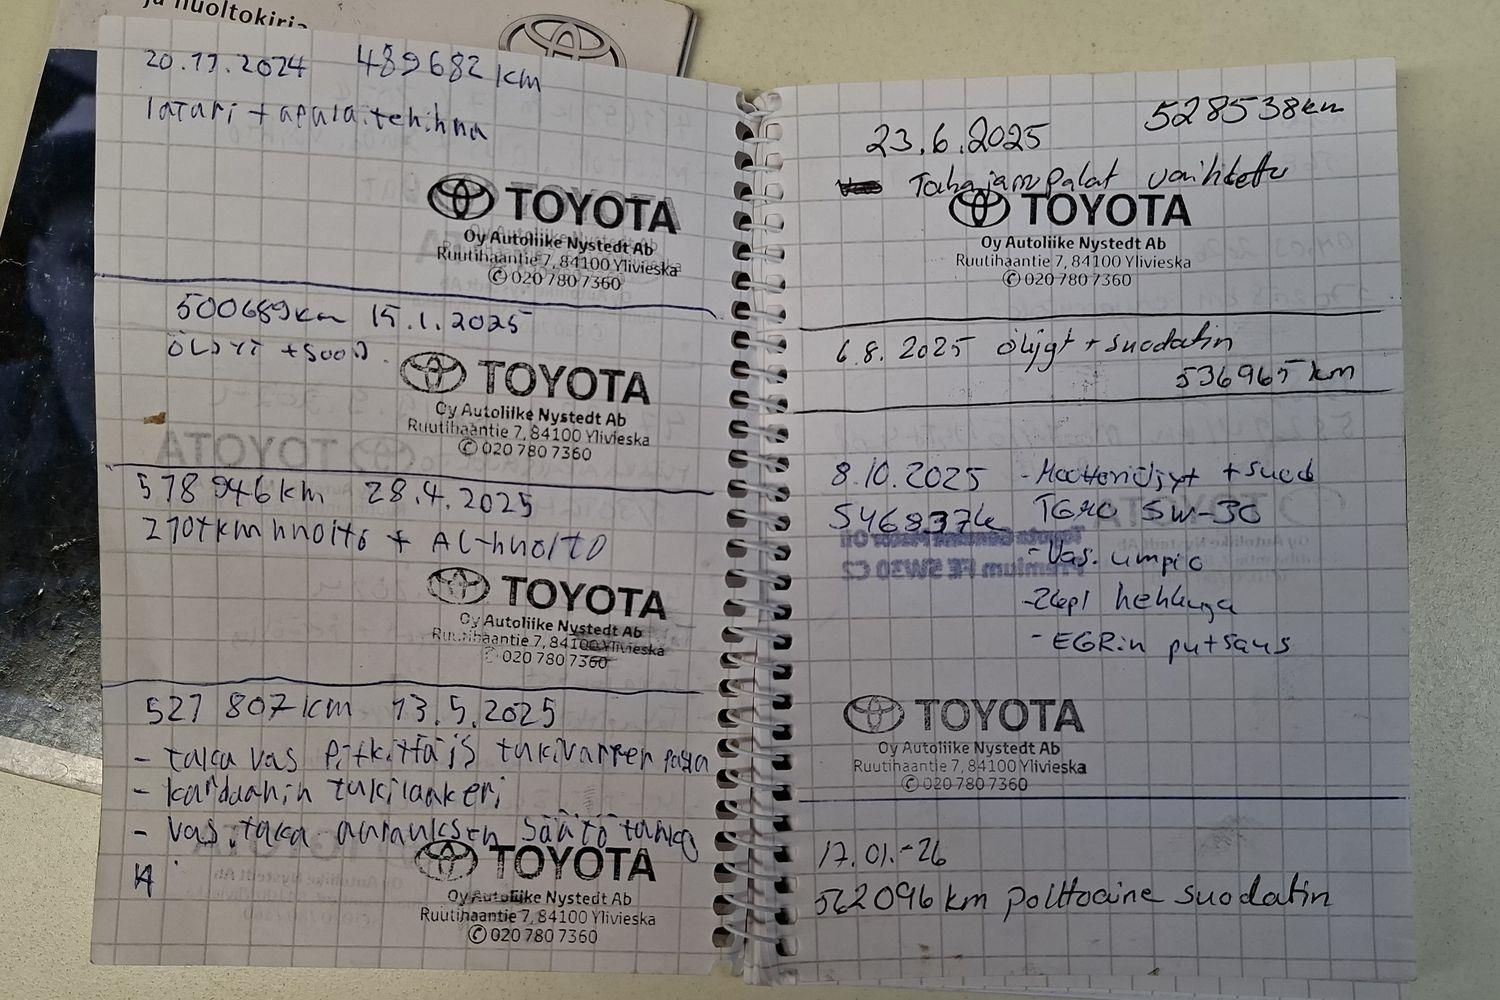 ja huoltokirja
20.11.2024 489682 km
latari + apula.tehihna
TOYOTA
Oy Autoliike Nystedt Ab
Ruutihaantie 7, 84100 Ylivieska
020 780 7360
500689km 15.1.2025
ÖLJYT + SUOD.
TOYOTA
Oy Autoliike Nystedt Ab
Ruutihaantie 7, 84100 Ylivieska
020 780 7360
518 946 km 28.4.2025
210tkm huolto + AC-huolto
TOYOTA
Oy Autoliike Nystedt Ab
Ruutihaantie 7, 84100 Ylivieska
020 780 7360
521 807 km 13.5.2025
- taka vas pitkittäis tukivarren
- kardaanin tukilaakeri
- vas. taka aurauksen säätö tanko
TOYOTA
Oy Autoliike Nystedt Ab
Ruutihaantie 7, 84100 Ylivieska
020 780 7360
528538km
23.6.2025
Takajarrupalat vaihdettu
TOYOTA
Oy Autoliike Nystedt Ab
Ruutihaantie 7, 84100 Ylivieska
020 780 7360
6.8.2025 öljyt + suodatin
536965 km
8.10.2025 - Moottoriöljyt + suod
546837k TGMO 5W-30
- Vas. umpio
- 2kpl hehkuja
- EGR:n putsaus
TOYOTA
Oy Autoliike Nystedt Ab
Ruutihaantie 7, 84100 Ylivieska
020 780 7360
17.01.-26
562096 km polttoaine suodatin